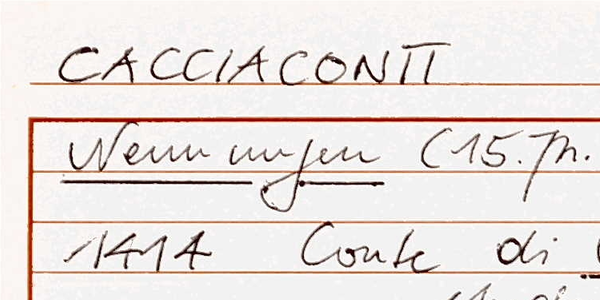 CACCIACONTI
Nennungen (15. Jh.
1414 Conte di